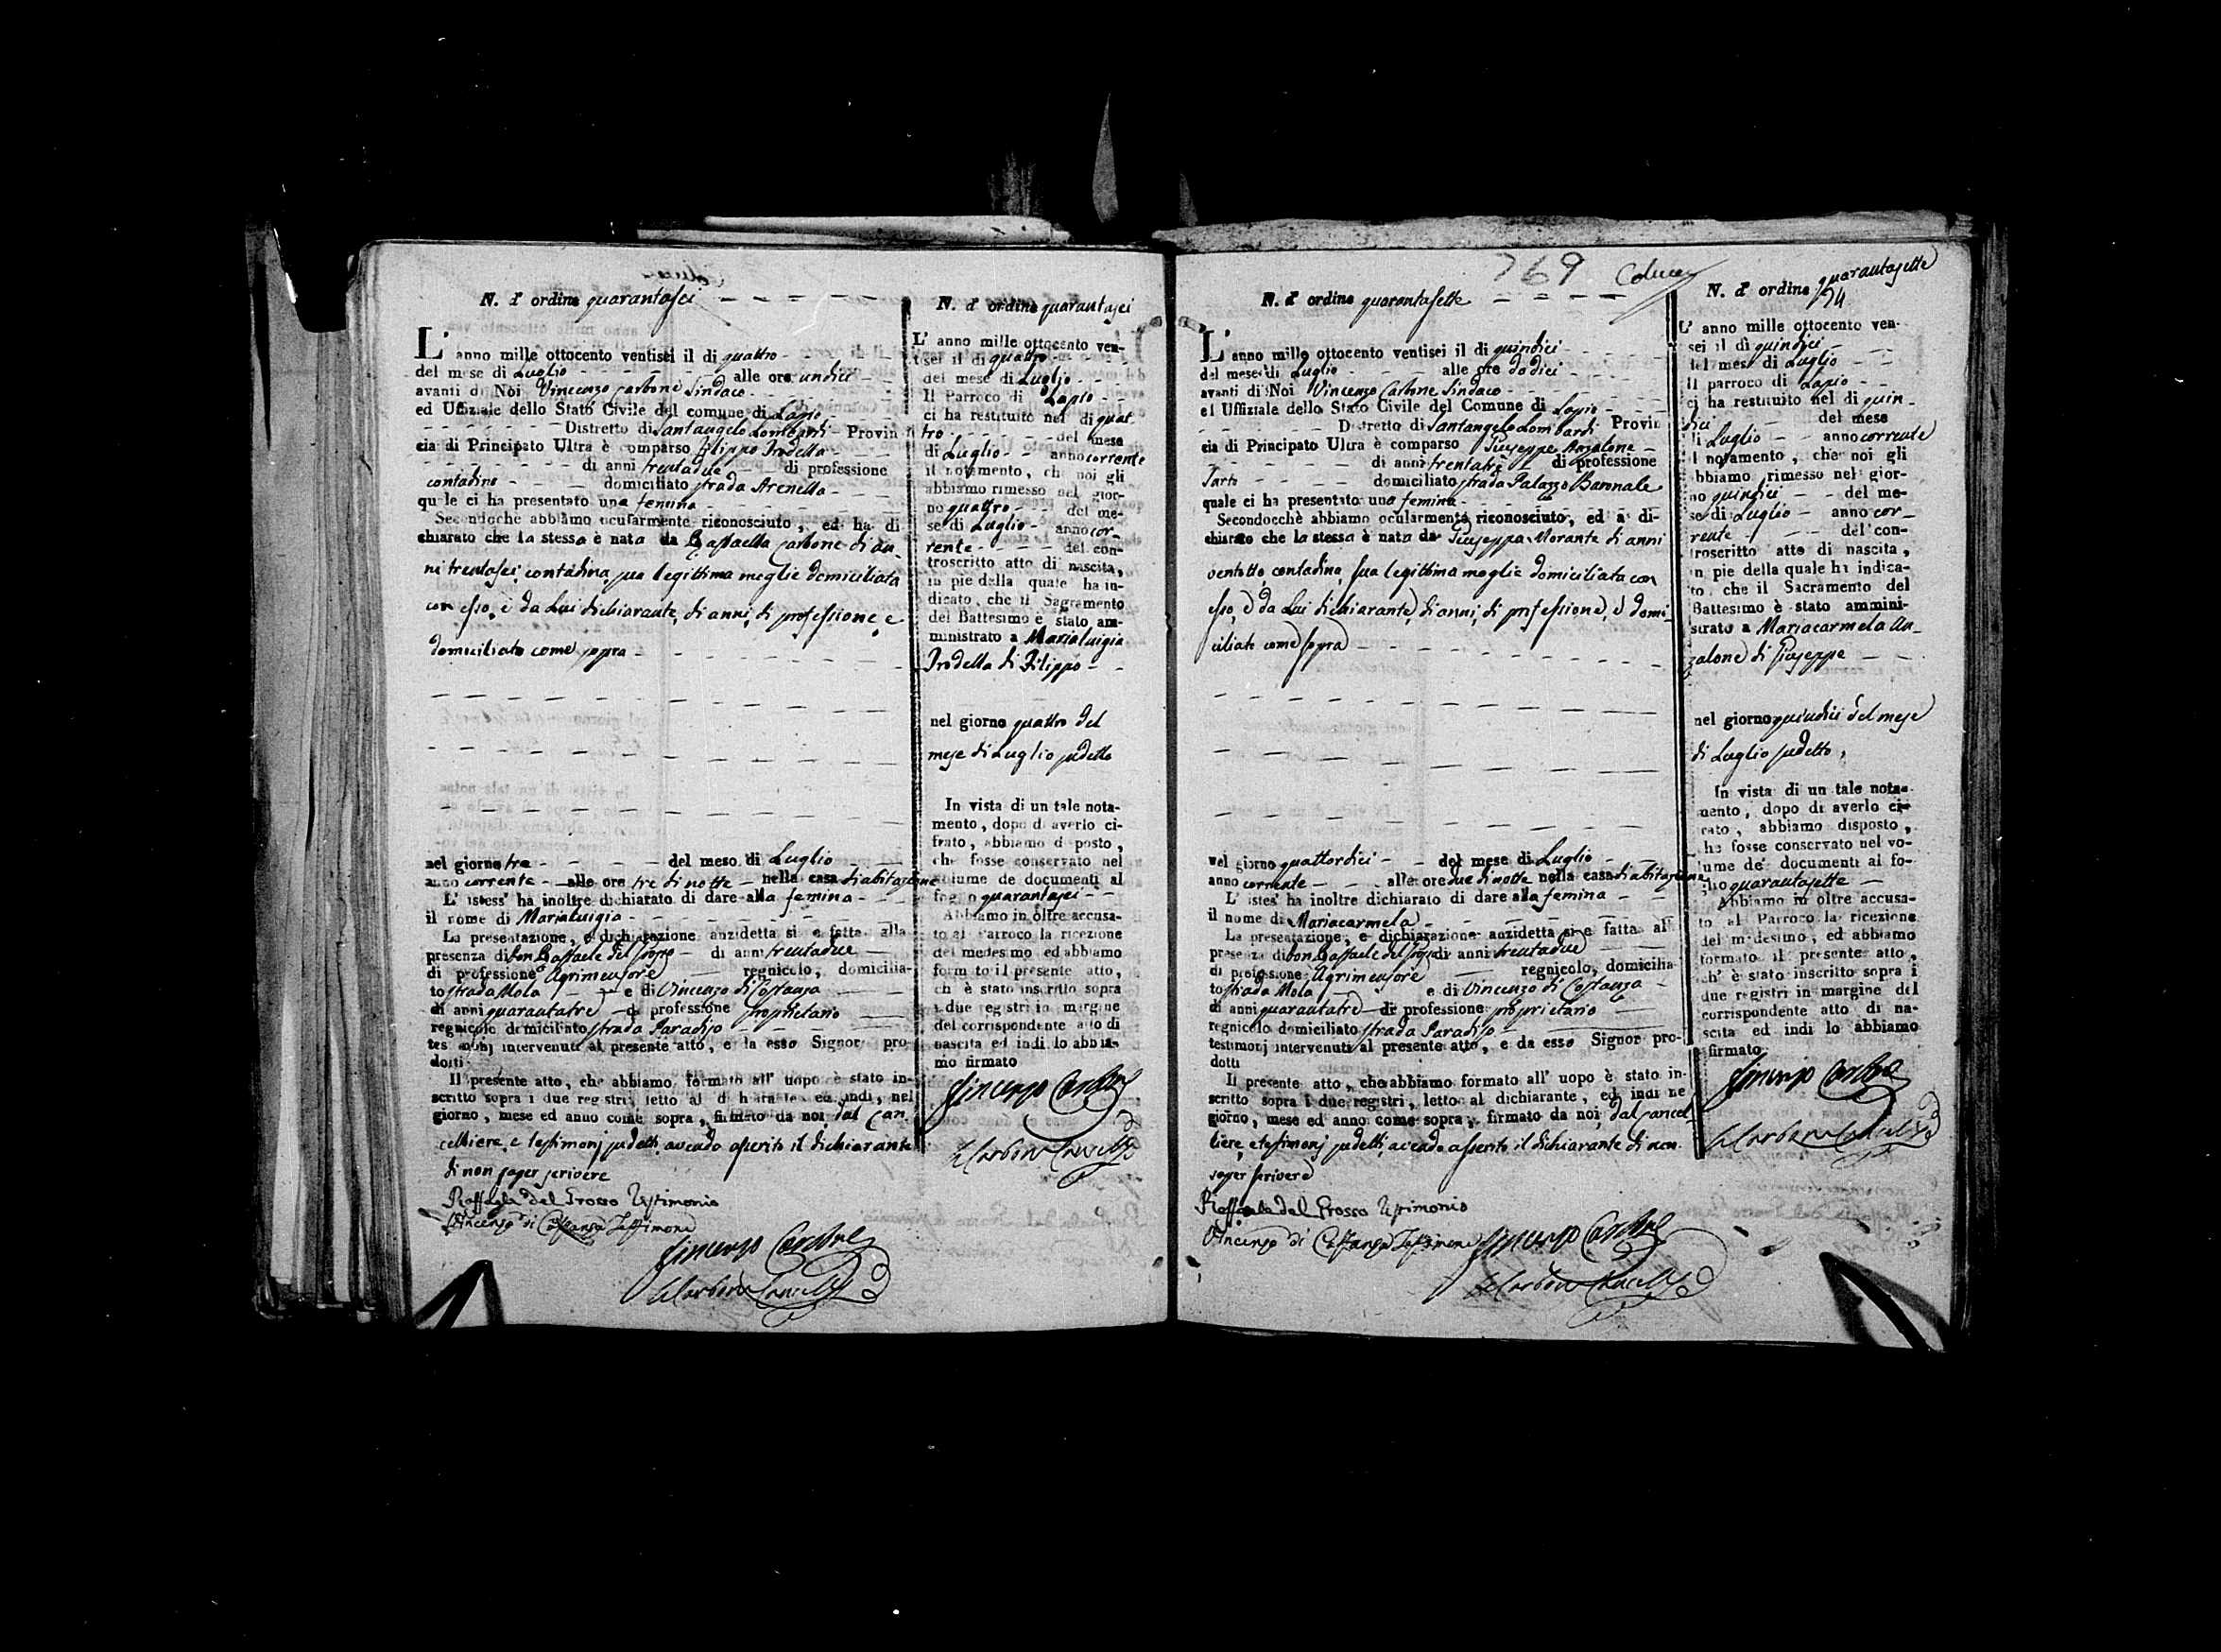 N. d' ordine quarantasei
L' anno mille ottocento ventisei il di quattro
del mese di Luglio alle ore undici
avanti di Noi Vincenzo Carbone Sindaco
ed Uffiziale dello Stato Civile del comune di Lapio
Distretto di Santangelo Lombardi Provin
cia di Principato Ultra è comparso Filippo Trodella
di anni trentadue di professione
contadino domiciliato strada Arenella
quale ci ha presentato una femina
Secondochè abbiamo ocularmente riconosciuto, ed ha di
chiarato che la stessa è nata da Raffaella Carbone di an
ni trentasei, contadina, sua legittima moglie domiciliata
con esso, è da Lui dichiarante, di anni, di professione, e
domiciliato come sopra
nel giorno tre del mese di Luglio
anno corrente alle ore tre di notte nella casa di abitazione
L' istess' ha inoltre dichiarato di dare alla femina
il nome di Marialuigia
La presentazione, e dichiarazione anzidetta si è fatta alla
presenza di Don Raffaele del Grosso di anni trentadue
di professione Agrimensore regnicolo, domicilia-
to strada Mola e di Vincenzo di Costanza
di anni quarantatre di professione proprietario
regnicolo domiciliato strada Paradiso
testimonj intervenuti al presente atto, e da esso Signor pro
dotti
Il presente atto, che abbiamo formato all' uopo è stato in-
scritto sopra i due registri, letto al dichiarante ed indi, nel
giorno, mese ed anno come sopra, firmato da noi, dal Can
celliere, e testimonj sudetti, avendo asserito il dichiarante
di non saper scrivere
Raffaele del Grosso Testimonio
Vincenzo di Costanza Testimone
Vincenzo Carbone
N. d' ordine quarantasei
L' anno mille ottocento ven-
tisei il di quattro
del mese di Luglio
Il Parroco di Lapio
ci ha restituito nel di quat
tro del mese
di Luglio anno corrente
il notamento, che noi gli
abbiamo rimesso nel gior-
no quattro del me-
se di Luglio anno cor
rente del con-
troscritto atto di nascita,
in piè della quale ha in-
dicato, che il Sagramento
del Battesimo è stato am-
ministrato a Marialuigia
Trodella di Filippo
nel giorno quattro del
mese di Luglio sudetto
In vista di un tale nota-
mento, dopo d averlo ci-
frato, abbiamo disposto,
che fosse conservato nel
volume de documenti al
foglio quarantasei
Abbiamo in oltre accusa-
to al Parroco la ricezione
del medesimo ed abbiamo
formato il presente atto,
ch' è stato inscritto sopra
i due registri in margine
del corrispondente atto di
nascita ed indi lo abbia-
mo firmato
Vincenzo Carbone
769
N. d' ordine quarantasette
L' anno mille ottocento ventisei il di quindici
del mese di Luglio alle ore dodici
avanti di Noi Vincenzo Carbone Sindaco
ed Uffiziale dello Stato Civile del Comune di Lapio
Distretto di Santangelo Lombardi Provin
cia di Principato Ultra è comparso Giuseppe Anzalone
di anni trentatrè di professione
Sarto domiciliato strada Palazzo Baronale
quale ci ha presentato una femina
Secondocchè abbiamo ocularmente riconosciuto, ed a di-
chiarato che la stessa è nata da Giuseppa Morante di anni
ventotto, contadina, sua legittima moglie domiciliata con
esso, è da Lui dichiarante, di anni, di professione, e domi
ciliato come sopra
nel giorno quattordici del mese di Luglio
anno corrente alle ore due di notte nella casa di abitazione
L' istes' ha inoltre dichiarato di dare alla femina
il nome di Mariacarmela
La presentazione, e dichiarazione anzidetta si è fatta all
presenza di Don Raffaele del Grosso di anni trentadue
di professione Agrimensore regnicolo, domicilia-
to strada Mola e di Vincenzo di Costanza
di anni quarantatre di professione proprietario
regnicolo domiciliato strada Paradiso
testimonj intervenuti al presente atto, e da esso Signor pro-
dotti
Il presente atto, che abbiamo formato all' uopo è stato in-
scritto sopra i due registri, letto al dichiarante, ed indi ne
giorno, mese ed anno come sopra, firmato da noi, dal Cancel
liere, e testimonj sudetti, avendo asserito il dichiarante di non
saper scrivere
Raffaele del Grosso Testimonio
Vincenzo di Costanza Testimone
Vincenzo Carbone
N. d' ordine quarantasette
94
L' anno mille ottocento ven-
sei il dì quindici
del mese di Luglio
Il parroco di Lapio
ci ha restituito nel di quin
dici del mese
di Luglio anno corrente
il notamento, che noi gli
abbiamo rimesso nel gior-
no quindici del me-
se di Luglio anno cor
rente del con-
troscritto atto di nascita,
in piè della quale ha indica-
to che il Sacramento del
Battesimo è stato ammini-
strato a Mariacarmela An
zalone di Giuseppe
nel giorno quindici del mese
di Luglio sudetto,
In vista di un tale nota-
mento, dopo di averlo ci-
frato, abbiamo disposto,
che fosse conservato nel vo-
lume de' documenti al fo-
glio quarantasette
Abbiamo in oltre accusa-
to al Parroco la ricezione
del medesimo, ed abbiamo
formato il presente atto,
ch' è stato inscritto sopra i
due registri in margine del
corrispondente atto di na-
scita ed indi lo abbiamo
firmato
Vincenzo Carbone